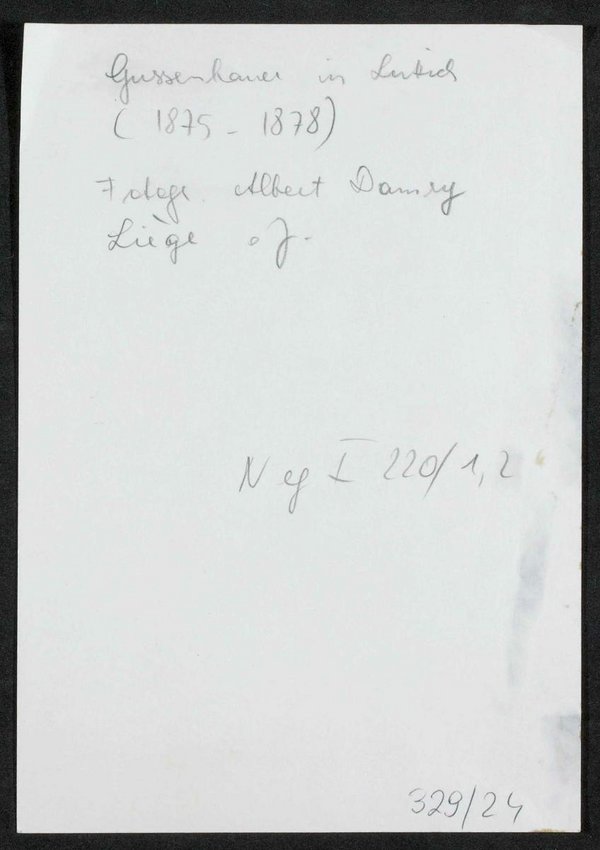 Gussenbauer in Lüttich
(1875 - 1878)
Fotogr. Albert Damry
Liège o J.
Neg I 220/1,2
329/24